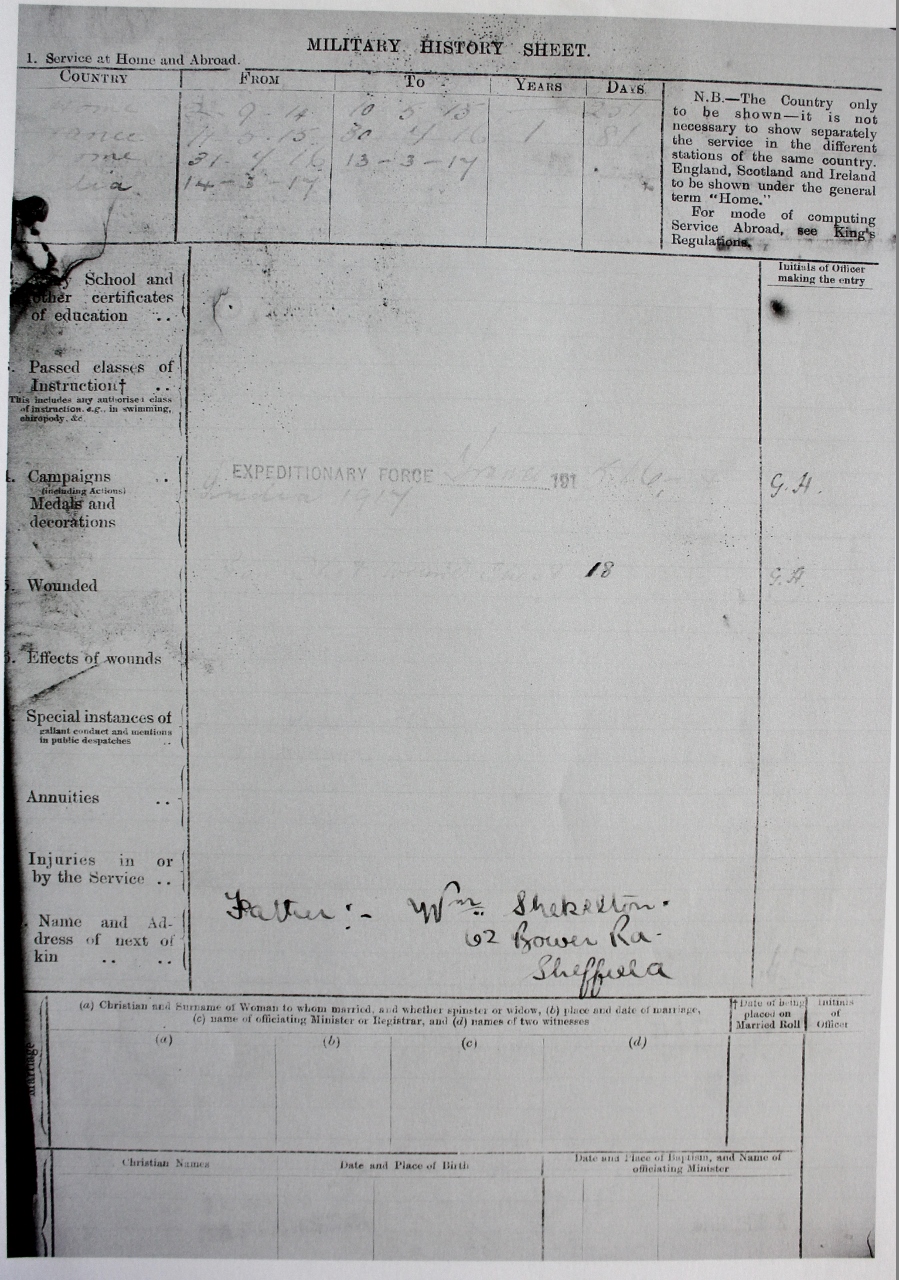 MILITARY HISTORY SHEET.
1. Service at Home and Abroad.
COUNTRY FROM TO YEARS DAYS
9 14 10 5 15
15 30 16 1 81
31 16 13-3-17
14-3-17
N.B.—The Country only
to be shown—it is not
necessary to show separately
the service in the different
stations of the same country.
England, Scotland and Ireland
to be shown under the general
term "Home."
For mode of computing
Service Abroad, see King's
Regulations.
Initials of Officer
making the entry
School and
other certificates
of education ..
Passed classes of
Instruction† ..
This includes any authorised class
of instruction, e.g., in swimming,
chiropody, &c.
Campaigns ..
(including Actions)
Medals and
decorations
EXPEDITIONARY FORCE 191
India 1917
G.H.
Wounded
18
G.H.
Effects of wounds
Special instances of
gallant conduct and mentions
in public despatches ..
Annuities ..
Injuries in or
by the Service ..
Name and Ad-
dress of next of
kin .. ..
Father :- Wm. Shekelton.
62 Bower Rd.
Sheffield
(a) Christian and Surname of Woman to whom married, and whether spinster or widow, (b) place and date of marriage,
(c) name of officiating Minister or Registrar, and (d) names of two witnesses
†Date of being
placed on
Married Roll
Initials
of
Officer
Marriage
(a) (b) (c) (d)
Christian Names
Date and Place of Birth
Date and Place of Baptism, and Name of
officiating Minister